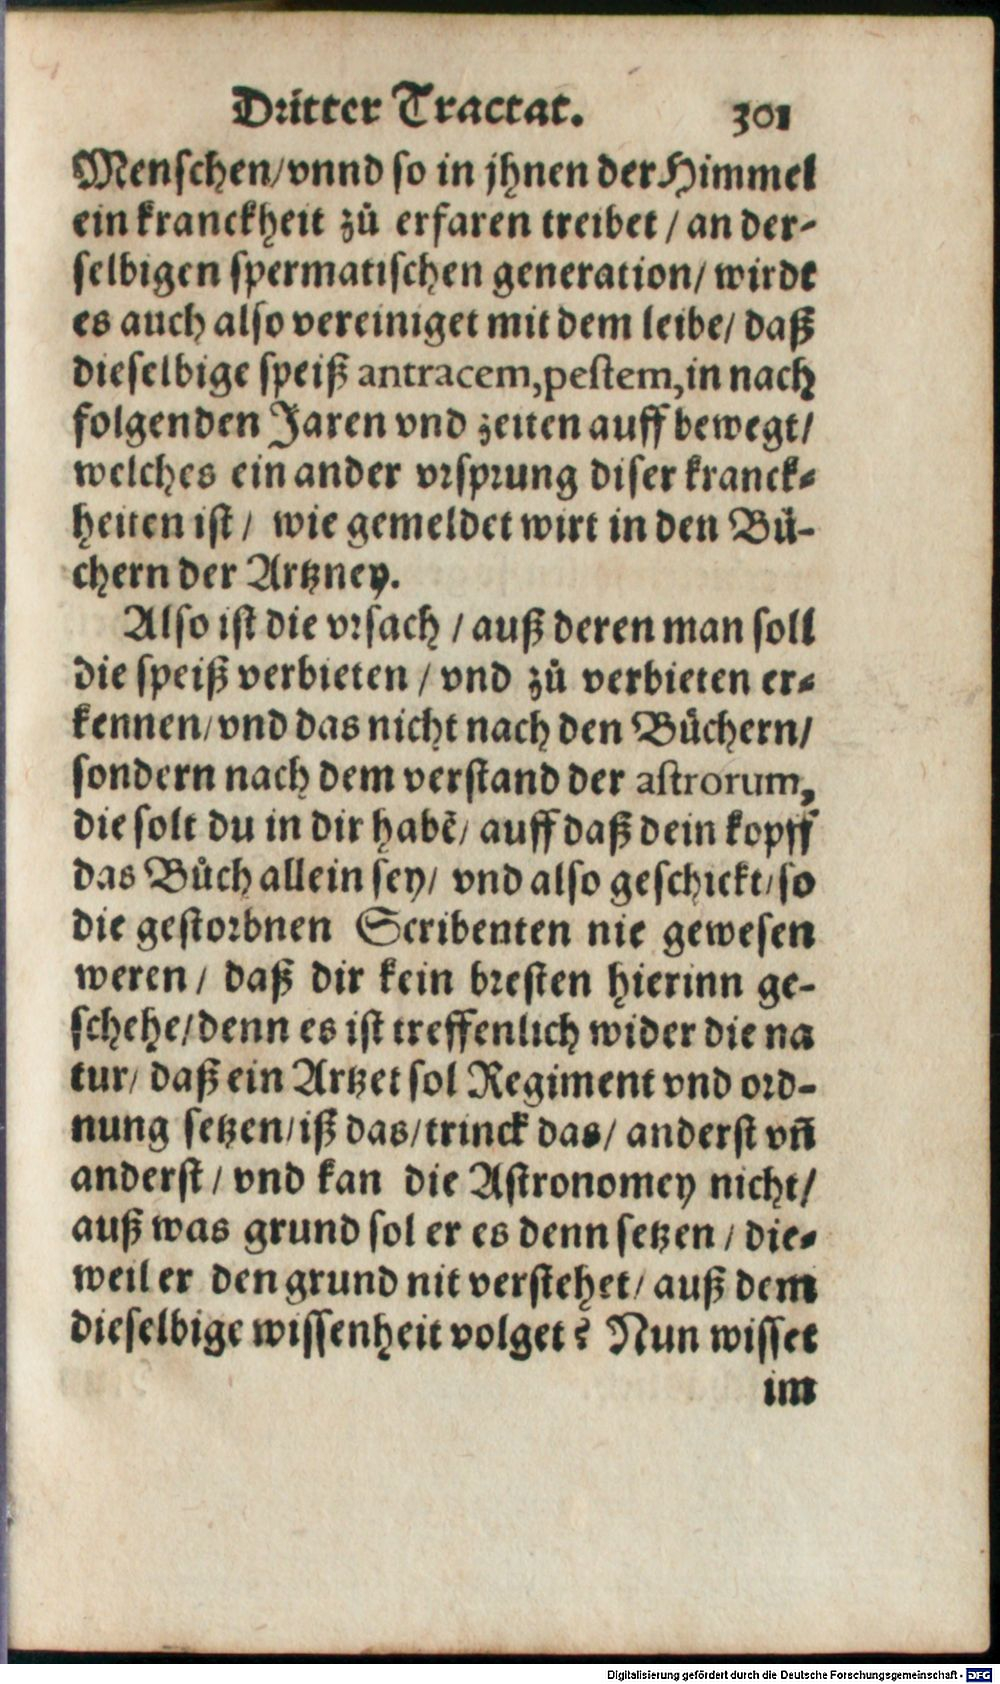 Dritter Tractat. 301
Menschen/vnnd so in jhnen der Himmel
ein kranckheit zů erfaren treibet / an der-
selbigen spermatischen generation/ wirdt
es auch also vereiniget mit dem leibe/ daß
dieselbige speiß antracem,pestem,in nach
folgenden Jaren vnd zeiten auff bewegt/
welches ein ander vrsprung diser kranck-
heiten ist / wie gemeldet wirt in den Bü-
chern der Artzney.
Also ist die vrsach / auß deren man soll
die speiß verbieten / vnd zů verbieten er-
kennen/vnd das nicht nach den Büchern/
sondern nach dem verstand der astrorum,
die solt du in dir habē/ auff daß dein kopff
das Bůch allein sey/ vnd also geschickt/so
die gestorbnen Scribenten nie gewesen
weren / daß dir kein bresten hierinn ge-
schehe/denn es ist treffenlich wider die na
tur/ daß ein Artzet sol Regiment vnd ord-
nung setzen/iß das/trinck das/ anderst vñ
anderst / vnd kan die Astronomey nicht/
auß was grund sol er es denn setzen / die-
weil er den grund nit verstehet/ auß dem
dieselbige wissenheit volget? Nun wisset
im
Digitalisierung gefördert durch die Deutsche Forschungsgemeinschaft - DFG